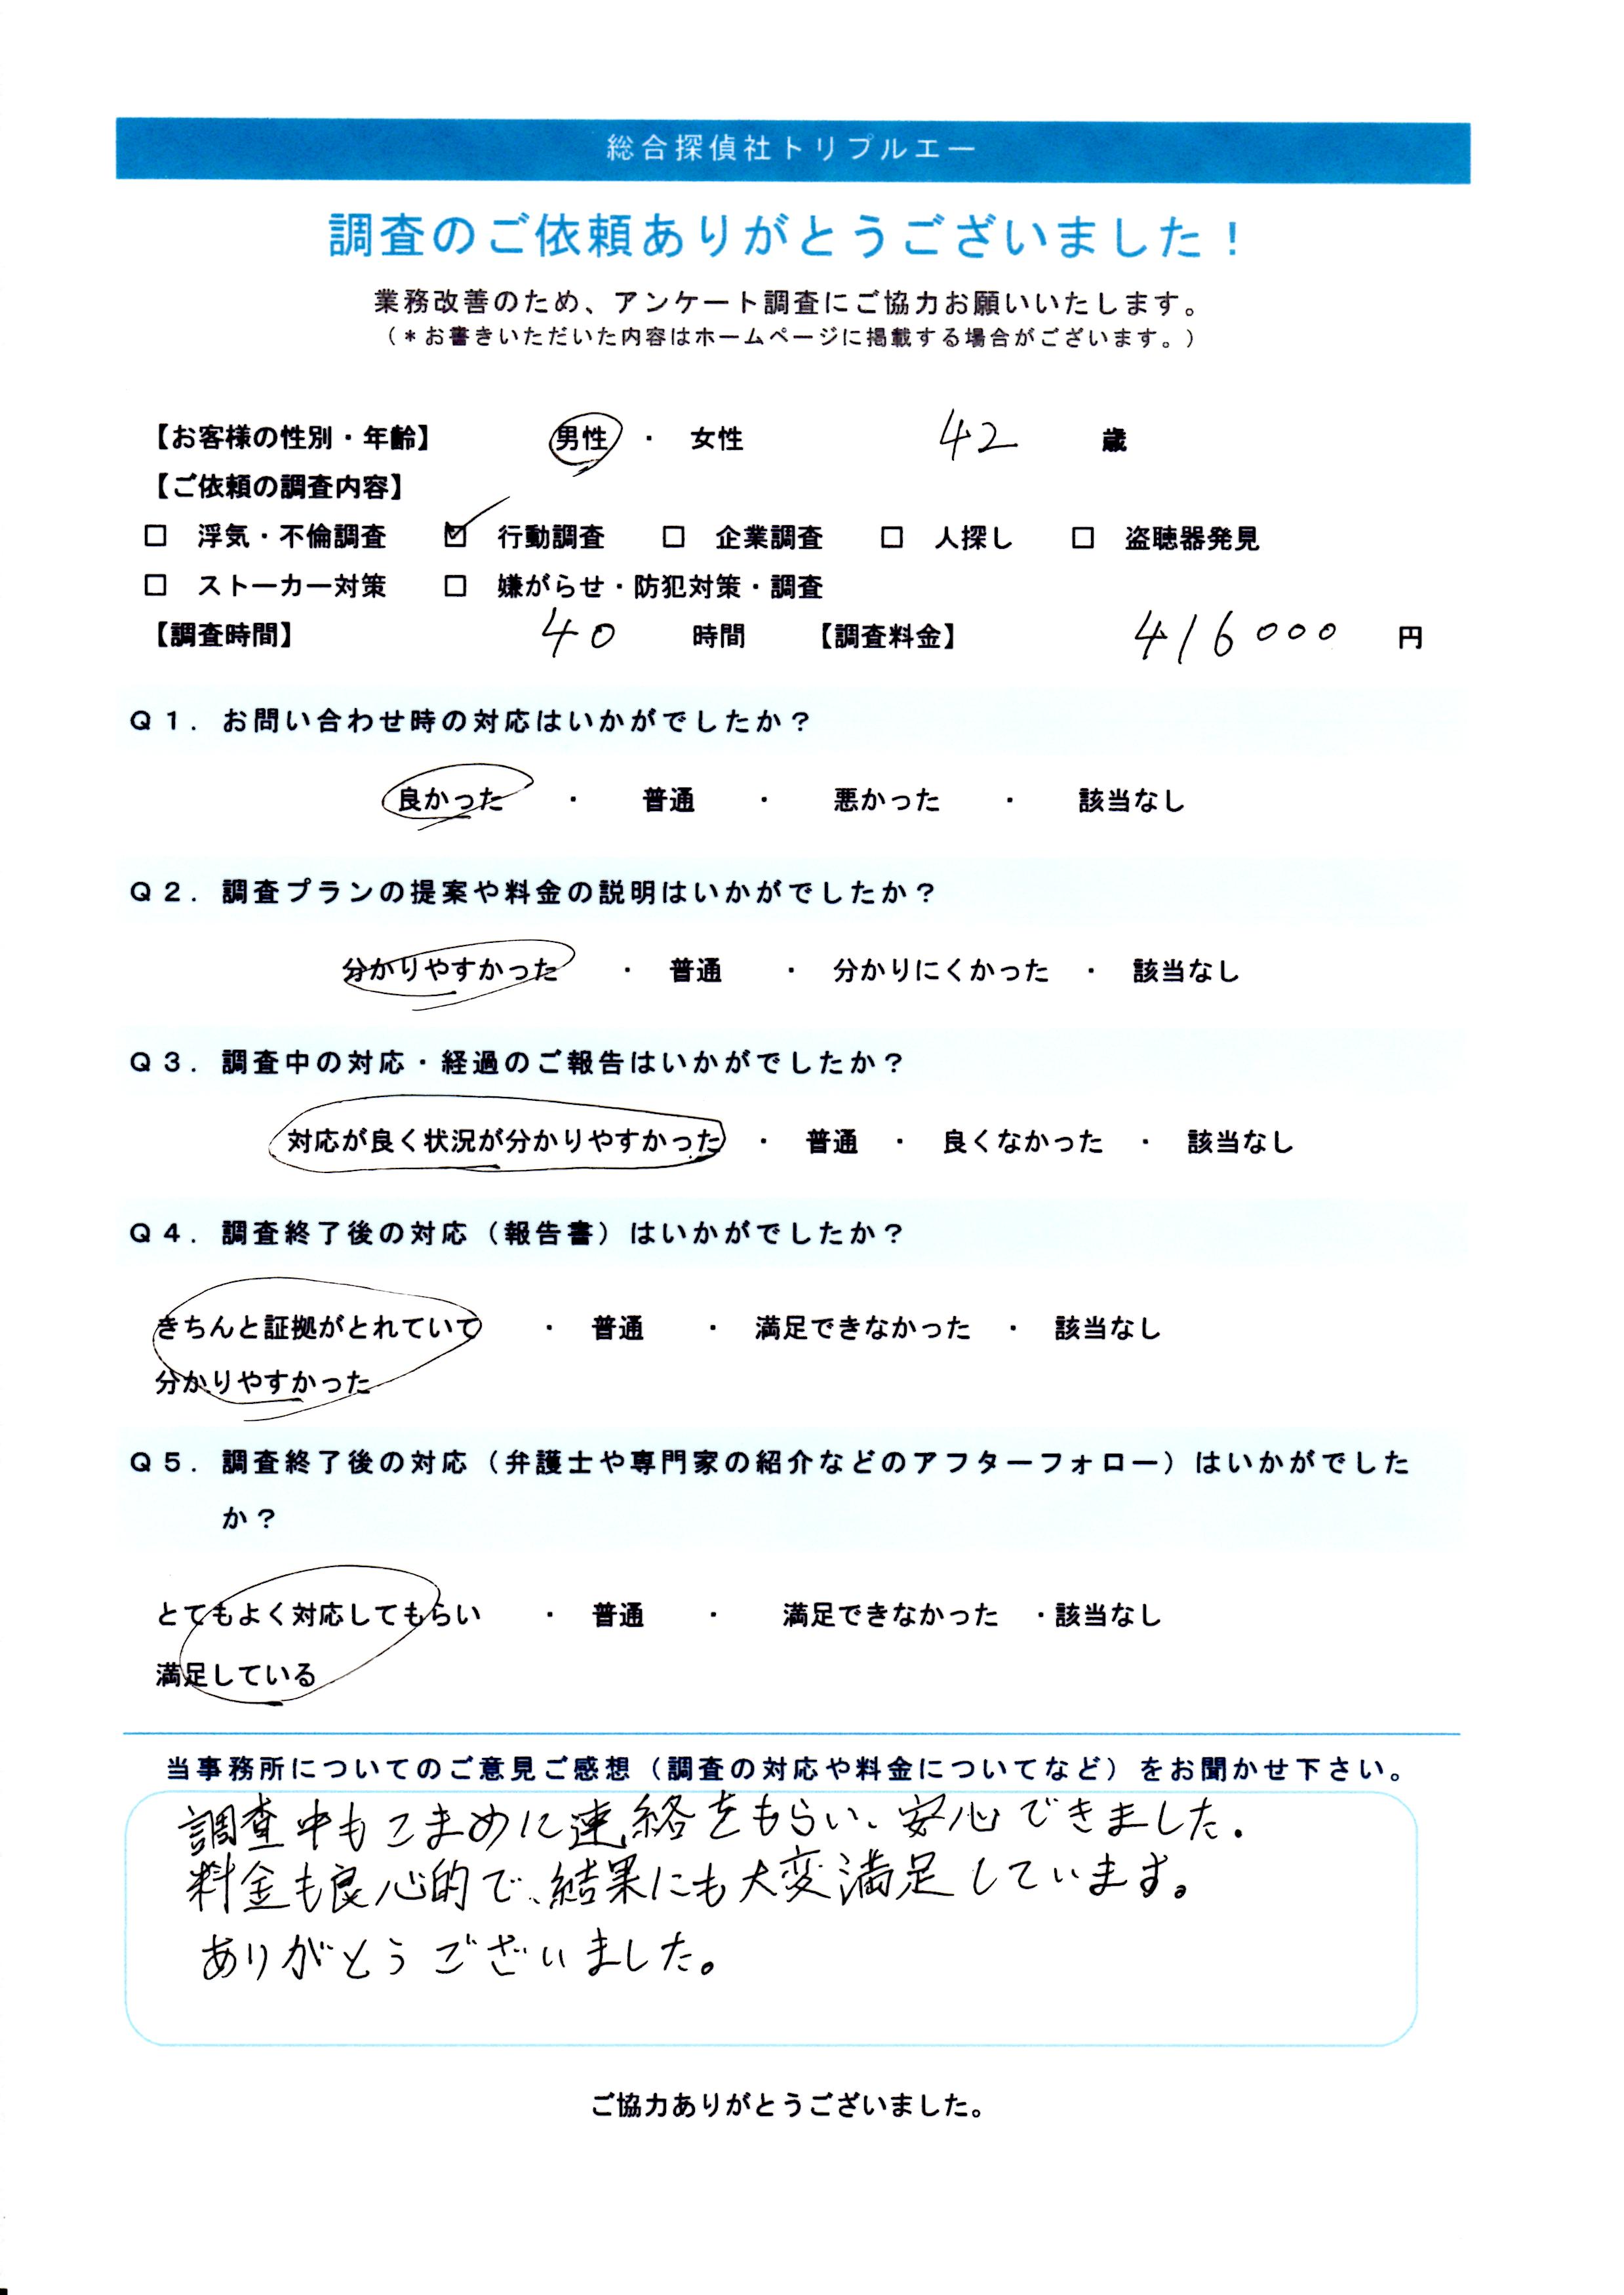 総合探偵社トリプルエー
調査のご依頼ありがとうございました！
業務改善のため、アンケート調査にご協力お願いいたします。
（＊お書きいただいた内容はホームページに掲載する場合がございます。）
【お客様の性別・年齢】 男性 ・ 女性 42 歳
【ご依頼の調査内容】
□ 浮気・不倫調査 ☑ 行動調査 □ 企業調査 □ 人探し □ 盗聴器発見
□ ストーカー対策 □ 嫌がらせ・防犯対策・調査
【調査時間】 40 時間 【調査料金】 416000 円
Ｑ１．お問い合わせ時の対応はいかがでしたか？
良かった ・ 普通 ・ 悪かった ・ 該当なし
Ｑ２．調査プランの提案や料金の説明はいかがでしたか？
分かりやすかった ・ 普通 ・ 分かりにくかった ・ 該当なし
Ｑ３．調査中の対応・経過のご報告はいかがでしたか？
対応が良く状況が分かりやすかった ・ 普通 ・ 良くなかった ・ 該当なし
Ｑ４．調査終了後の対応（報告書）はいかがでしたか？
きちんと証拠がとれていて ・ 普通 ・ 満足できなかった ・ 該当なし
分かりやすかった
Ｑ５．調査終了後の対応（弁護士や専門家の紹介などのアフターフォロー）はいかがでした
か？
とてもよく対応してもらい ・ 普通 ・ 満足できなかった ・該当なし
満足している
当事務所についてのご意見ご感想（調査の対応や料金についてなど）をお聞かせ下さい。
調査中もこまめに連絡をもらい、安心できました.
料金も良心的で、結果にも大変満足しています。
ありがとうございました。
ご協力ありがとうございました。